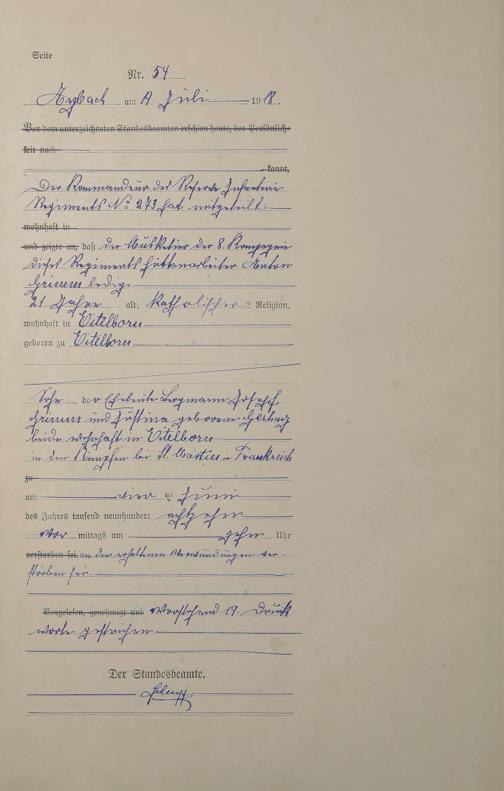 Seite
Nr. 54
Arzbach am 9. Juli 1918.
Vor dem unterzeichneten Standesbeamten erschien heute, der Persönlich-
keit nach
kannt,
Der Kommandeur des Reserve Infanterie
Regiments No 273 hat mitgeteilt
wohnhaft in
und zeigte an, daß der Musketier der 8. Kompagnie
dieses Regiments Hüttenarbeiter Anton
Grimm ledig
21 Jahre alt, katholischer Religion,
wohnhaft in Eitelborn
geboren zu Eitelborn
Sohn der Eheleute Bergmann Joseph
Grimm und Justina geborene
beide wohnhaft in Eitelborn
in den Kämpfen bei St. - Frankreich
zu
am vier Juni
des Jahres tausend neunhundert achtzehn
vor mittags um zehn Uhr
verstorben sei an den erhaltenen Verwundungen ver-
storben sei.
Vorgelesen, genehmigt und Vorstehend 19 Druck-
worte gestrichen
Der Standesbeamte.